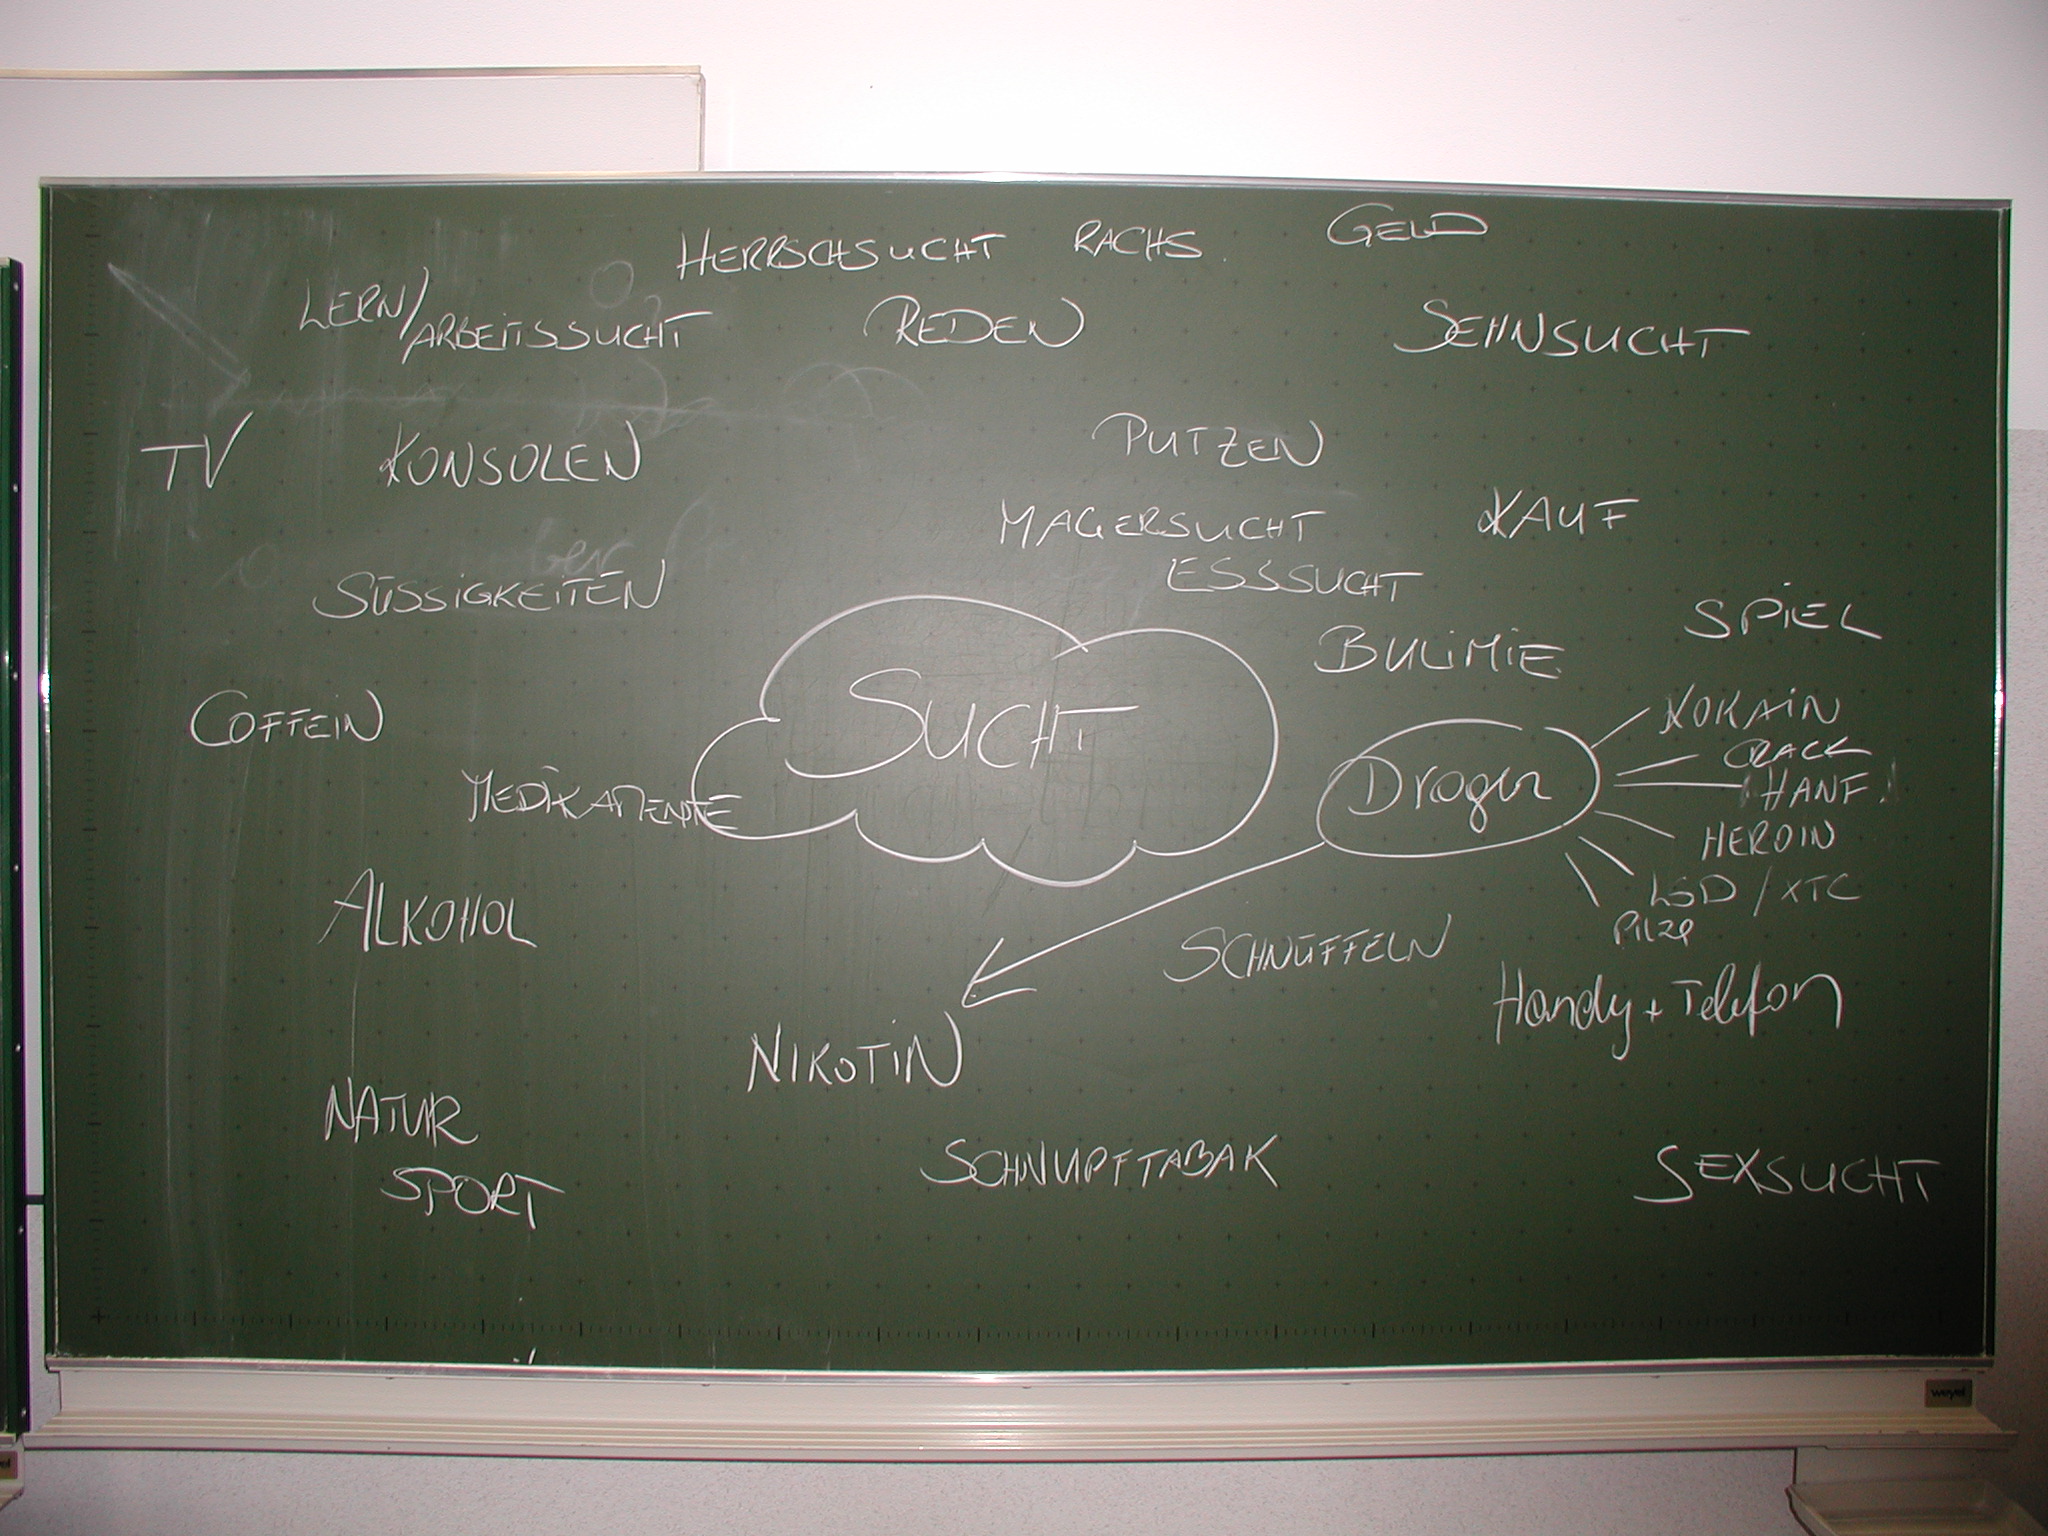 HERRSCHSUCHT RACHS. GELD
LERN/ARBEITSSUCHT REDEN SEHNSUCHT
TV KONSOLEN PUTZEN
MAGERSUCHT KAUF
SÜSSIGKEITEN ESSSUCHT
BULIMIE SPIEL
COFFEIN SUCHT KOKAIN
CRACK
MEDIKAMENTE Drogen HANF
HEROIN
LSD / XTC
ALKOHOL Pilze
SCHNÜFFELN
Handy + Telefon
NIKOTIN
NATUR
SPORT SCHNUPFTABAK SEXSUCHT
weyel